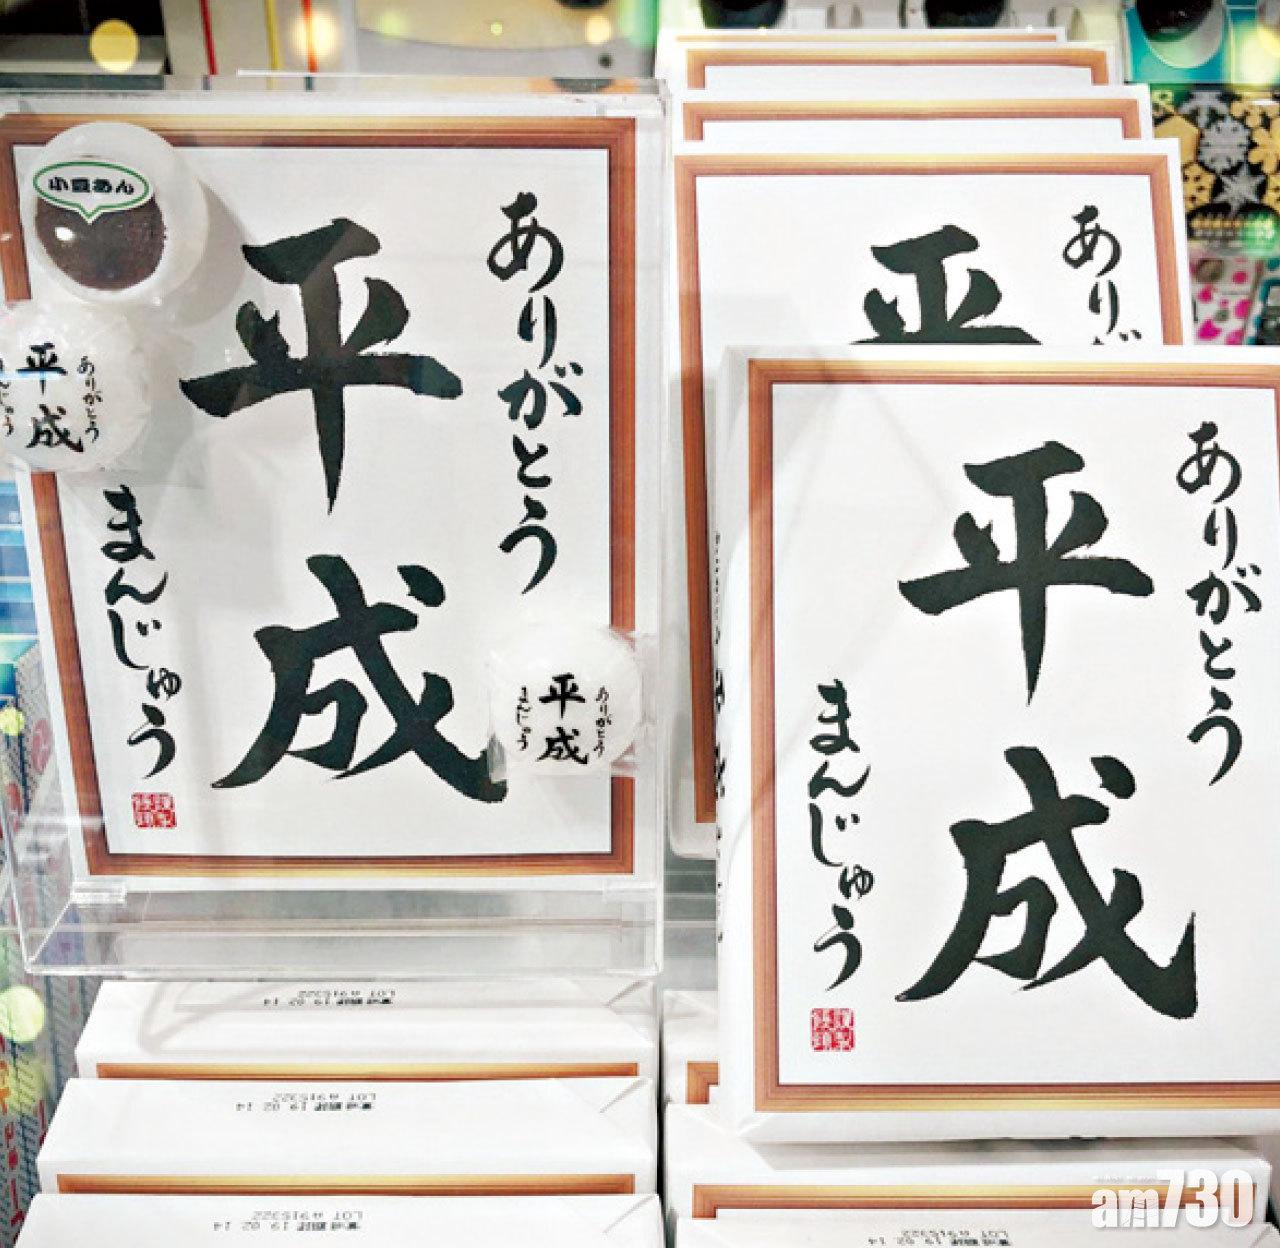 小豆あん
ありがとう
平成
まんじゅう
ありがとう
平成
まんじゅう
ありがとう
平成
まんじゅう
ありが
平
ありがとう
平成
まんじゅう
賞味期限 19 02 14
LOT A915322
賞味期限 19 02 14
LOT A915322
賞味期限 19 02 14
LOT A915322
am730